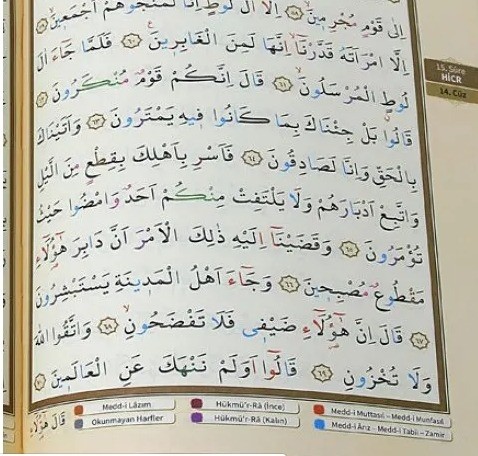 اِلٰى قَوْمٍ مُجْرِمٖينَۙ ﴿٥٨﴾ اِلَّٓا اٰلَ لُوطٍؕ اِنَّا لَمُنَجُّوهُمْ اَجْمَعٖينَۙ ﴿٥٩﴾
اِلَّا امْرَاَتَهُ قَدَّرْنَٓاۙ اِنَّهَا لَمِنَ الْغَابِرٖينَ ﴿٦٠﴾ فَلَمَّا جَٓاءَ اٰلَ
لُوطٍۨ الْمُرْسَلُونَۙ ﴿٦١﴾ قَالَ اِنَّكُمْ قَوْمٌ مُنْكَرُونَ ﴿٦٢﴾
قَالُوا بَلْ جِئْنَاكَ بِمَا كَانُوا فٖيهِ يَمْتَرُونَ ﴿٦٣﴾ وَاَتَيْنَاكَ
بِالْحَقِّ وَاِنَّا لَصَادِقُونَ ﴿٦٤﴾ فَاَسْرِ بِاَهْلِكَ بِقِطْعٍ مِنَ الَّيْلِ
وَاتَّبِعْ اَدْبَارَهُمْ وَلَا يَلْتَفِتْ مِنْكُمْ اَحَدٌ وَامْضُوا حَيْثُ
تُؤْمَرُونَ ﴿٦٥﴾ وَقَضَيْنَٓا اِلَيْهِ ذٰلِكَ الْاَمْرَ اَنَّ دَابِرَ هٰٓؤُ۬لَٓاءِ
مَقْطُوعٌ مُصْبِحٖينَ ﴿٦٦﴾ وَجَٓاءَ اَهْلُ الْمَدٖينَةِ يَسْتَبْشِرُونَ
﴿٦٧﴾ قَالَ اِنَّ هٰٓؤُ۬لَٓاءِ ضَيْفٖى فَلَا تَفْضَحُونِۙ ﴿٦٨﴾ وَاتَّقُوا اللّٰهَ
وَلَا تُخْزُونِ ﴿٦٩﴾ قَالُٓوا اَوَلَمْ نَنْهَكَ عَنِ الْعَالَمٖينَ ﴿٧٠﴾
قَالَ هٰٓؤُ۬لَٓاءِ
15. Sûre
HİCR
14. Cüz
Medd-i Lâzım
Hükmü'r-Râ (İnce)
Medd-i Muttasıl - Medd-i Munfasıl
Okunmayan Harfler
Hükmü'r-Râ (Kalın)
Medd-i Ârız - Medd-i Tabîî - Zamir